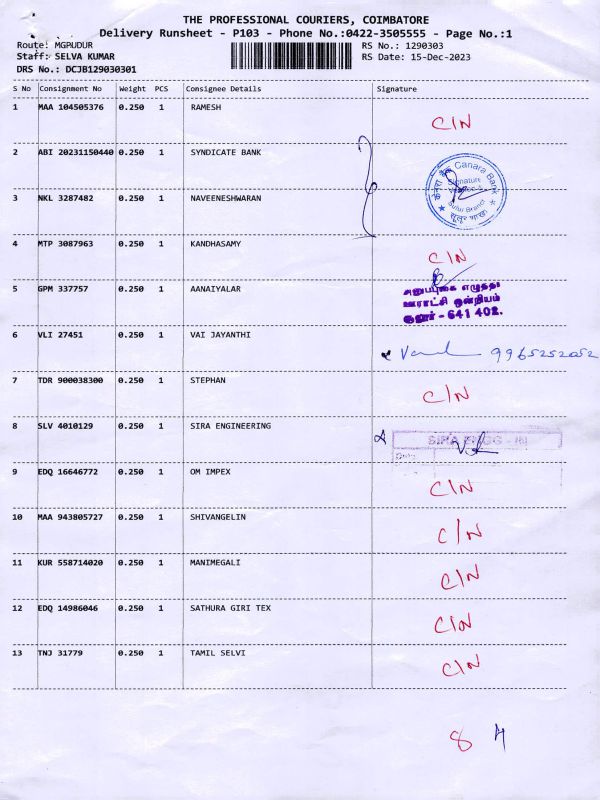 THE PROFESSIONAL COURIERS, COIMBATORE
Delivery Runsheet - P103 - Phone No.:0422-3505555 - Page No.:1
Route: MGRUDUR
RS No.: 1290303
Staff: SELVA KUMAR
RS Date: 15-Dec-2023
DRS No.: DCJB129030301
S No Consignment No Weight PCS Consignee Details Signature
1 MAA 104505376 0.250 1 RAMESH C/N
2 ABI 20231150440 0.250 1 SYNDICATE BANK
केनरा बैंक Canara Bank
Signature
Sulur Branch
सूलूर शाखा
3 NKL 3287482 0.250 1 NAVEENESHWARAN
4 MTP 3087963 0.250 1 KANDHASAMY C/N
5 GPM 337757 0.250 1 AANAIYALAR
ஊராட்சி ஒன்றியம்
சூலூர் - 641 402.
6 VLI 27451 0.250 1 VAI JAYANTHI 9965252052
7 TDR 900038300 0.250 1 STEPHAN C/N
8 SLV 4010129 0.250 1 SIRA ENGINEERING
9 EDQ 16646772 0.250 1 OM IMPEX C/N
10 MAA 943805727 0.250 1 SHIVANGELIN C/N
11 KUR 558714020 0.250 1 MANIMEGALI C/N
12 EDQ 14986046 0.250 1 SATHURA GIRI TEX C/N
13 TNJ 31779 0.250 1 TAMIL SELVI C/N
8